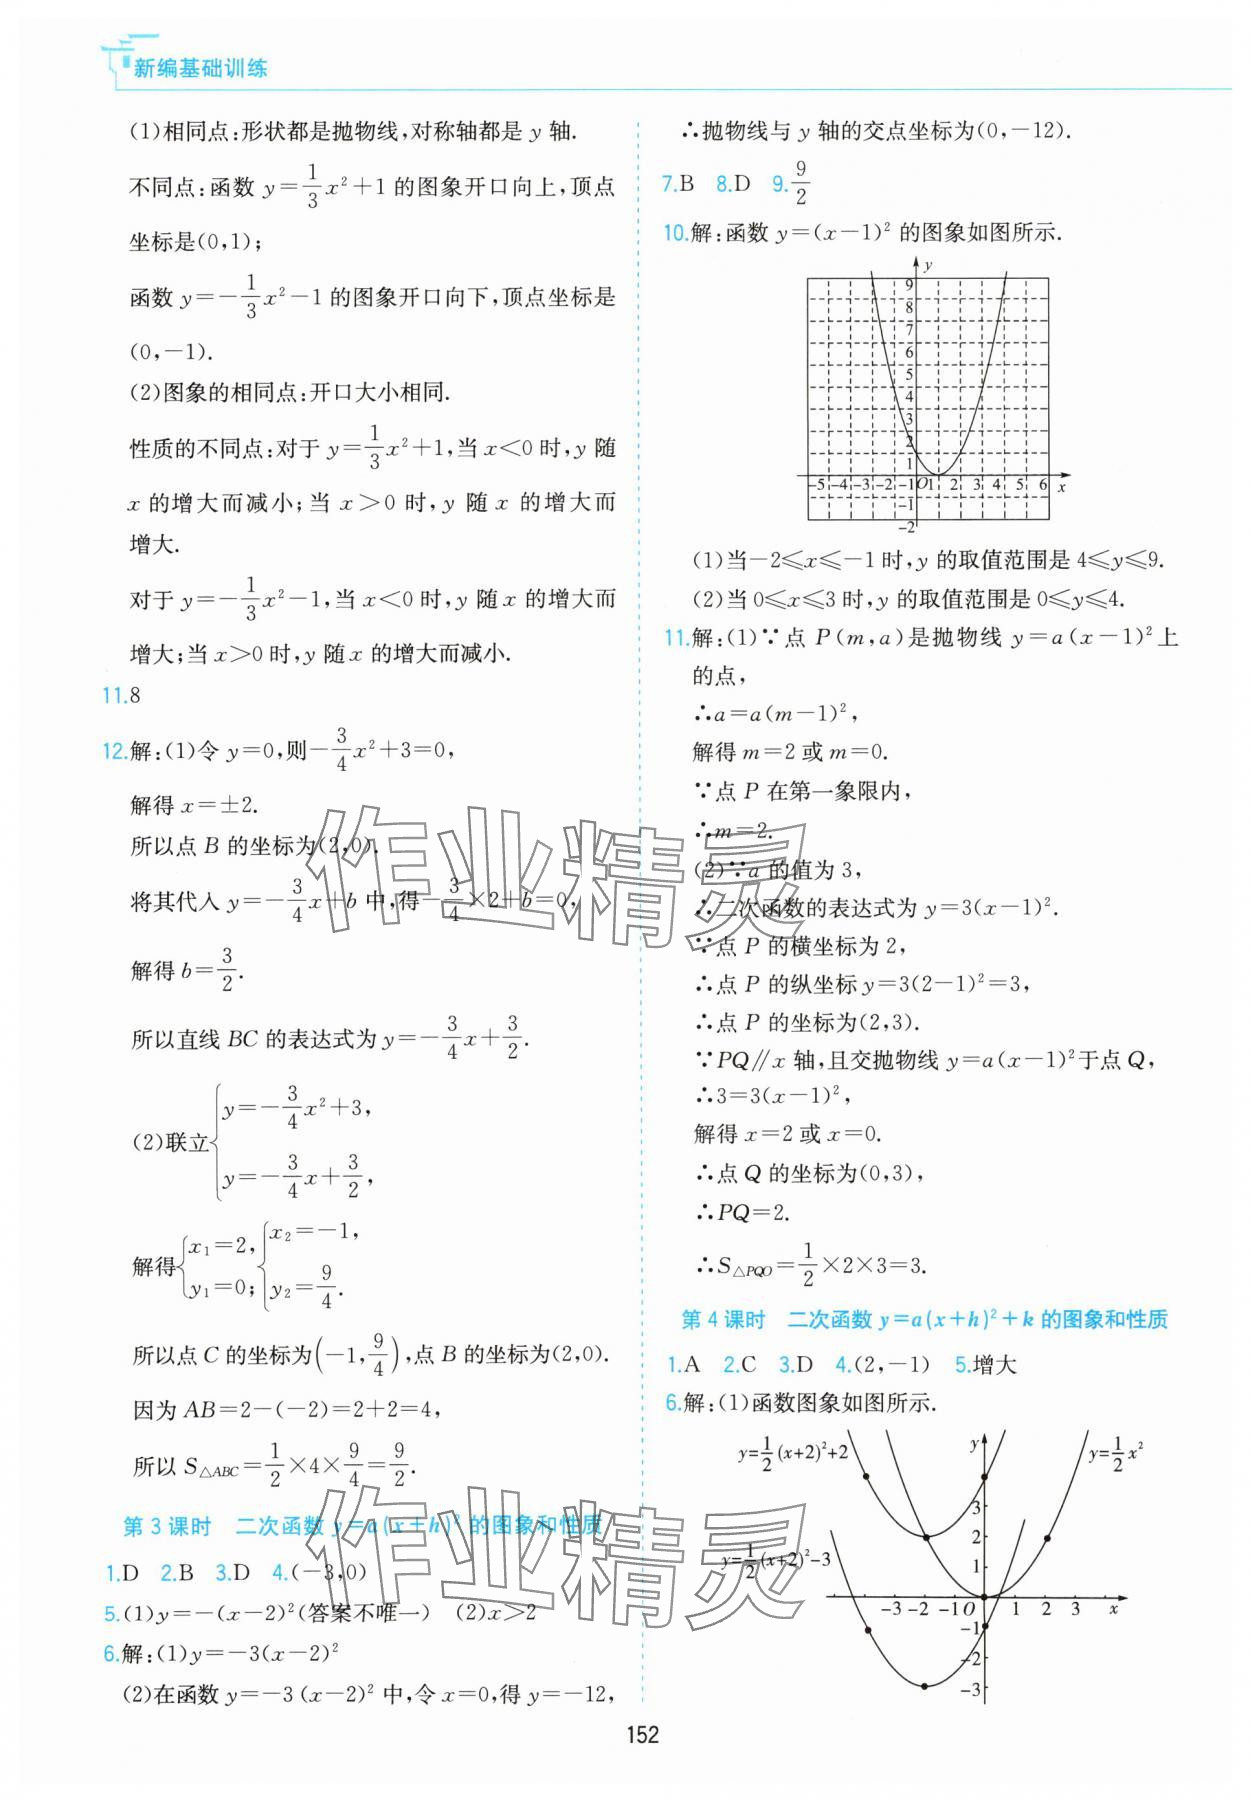 新编基础训练
(1)相同点:形状都是抛物线,对称轴都是 y 轴.
不同点:函数 y=1/3x²+1 的图象开口向上,顶点
坐标是(0,1);
函数 y=-1/3x²-1 的图象开口向下,顶点坐标是
(0,-1).
(2)图象的相同点:开口大小相同.
性质的不同点:对于 y=1/3x²+1,当 x<0 时,y 随
x 的增大而减小;当 x>0 时,y 随 x 的增大而
增大.
对于 y=-1/3x²-1,当 x<0 时,y 随 x 的增大而
增大;当 x>0 时,y 随 x 的增大而减小.
11.8
12.解:(1)令 y=0,则-3/4x²+3=0,
解得 x=±2.
所以点 B 的坐标为(2,0).
将其代入 y=-3/4x+b 中,得-3/4×2+b=0,
解得 b=3/2.
所以直线 BC 的表达式为 y=-3/4x+3/2.
(2)联立{y=-3/4x²+3,
y=-3/4x+3/2,
解得{x₁=2, {x₂=-1,
y₁=0; y₂=9/4.
所以点 C 的坐标为(-1,9/4),点 B 的坐标为(2,0).
因为 AB=2-(-2)=2+2=4,
所以 S△ABC=1/2×4×9/4=9/2.
第 3 课时 二次函数 y=a(x+h)² 的图象和性质
1.D 2.B 3.D 4.(-3,0)
5.(1)y=-(x-2)²(答案不唯一) (2)x>2
6.解:(1)y=-3(x-2)²
(2)在函数 y=-3(x-2)² 中,令 x=0,得 y=-12,
∴抛物线与 y 轴的交点坐标为(0,-12).
7.B 8.D 9.9/2
10.解:函数 y=(x-1)² 的图象如图所示.
y
9
8
7
6
5
4
3
2
1
-5 -4 -3 -2 -1 O 1 2 3 4 5 6 x
-1
-2
(1)当-2≤x≤-1 时,y 的取值范围是 4≤y≤9.
(2)当 0≤x≤3 时,y 的取值范围是 0≤y≤4.
11.解:(1)∵点 P(m,a)是抛物线 y=a(x-1)² 上
的点,
∴a=a(m-1)²,
解得 m=2 或 m=0.
∵点 P 在第一象限内,
∴m=2.
(2)∵a 的值为 3,
∴二次函数的表达式为 y=3(x-1)².
∵点 P 的横坐标为 2,
∴点 P 的纵坐标 y=3(2-1)²=3,
∴点 P 的坐标为(2,3).
∵PQ∥x 轴,且交抛物线 y=a(x-1)²于点 Q,
∴3=3(x-1)²,
解得 x=2 或 x=0.
∴点 Q 的坐标为(0,3),
∴PQ=2.
∴S△PQO=1/2×2×3=3.
第 4 课时 二次函数 y=a(x+h)²+k 的图象和性质
1.A 2.C 3.D 4.(2,-1) 5.增大
6.解:(1)函数图象如图所示.
y=1/2(x+2)²+2 y y=1/2x²
3
2
y=1/2(x+2)²-3 1
-3 -2 -1 O 1 2 3 x
-1
-2
-3
作业精灵
作业精灵
152